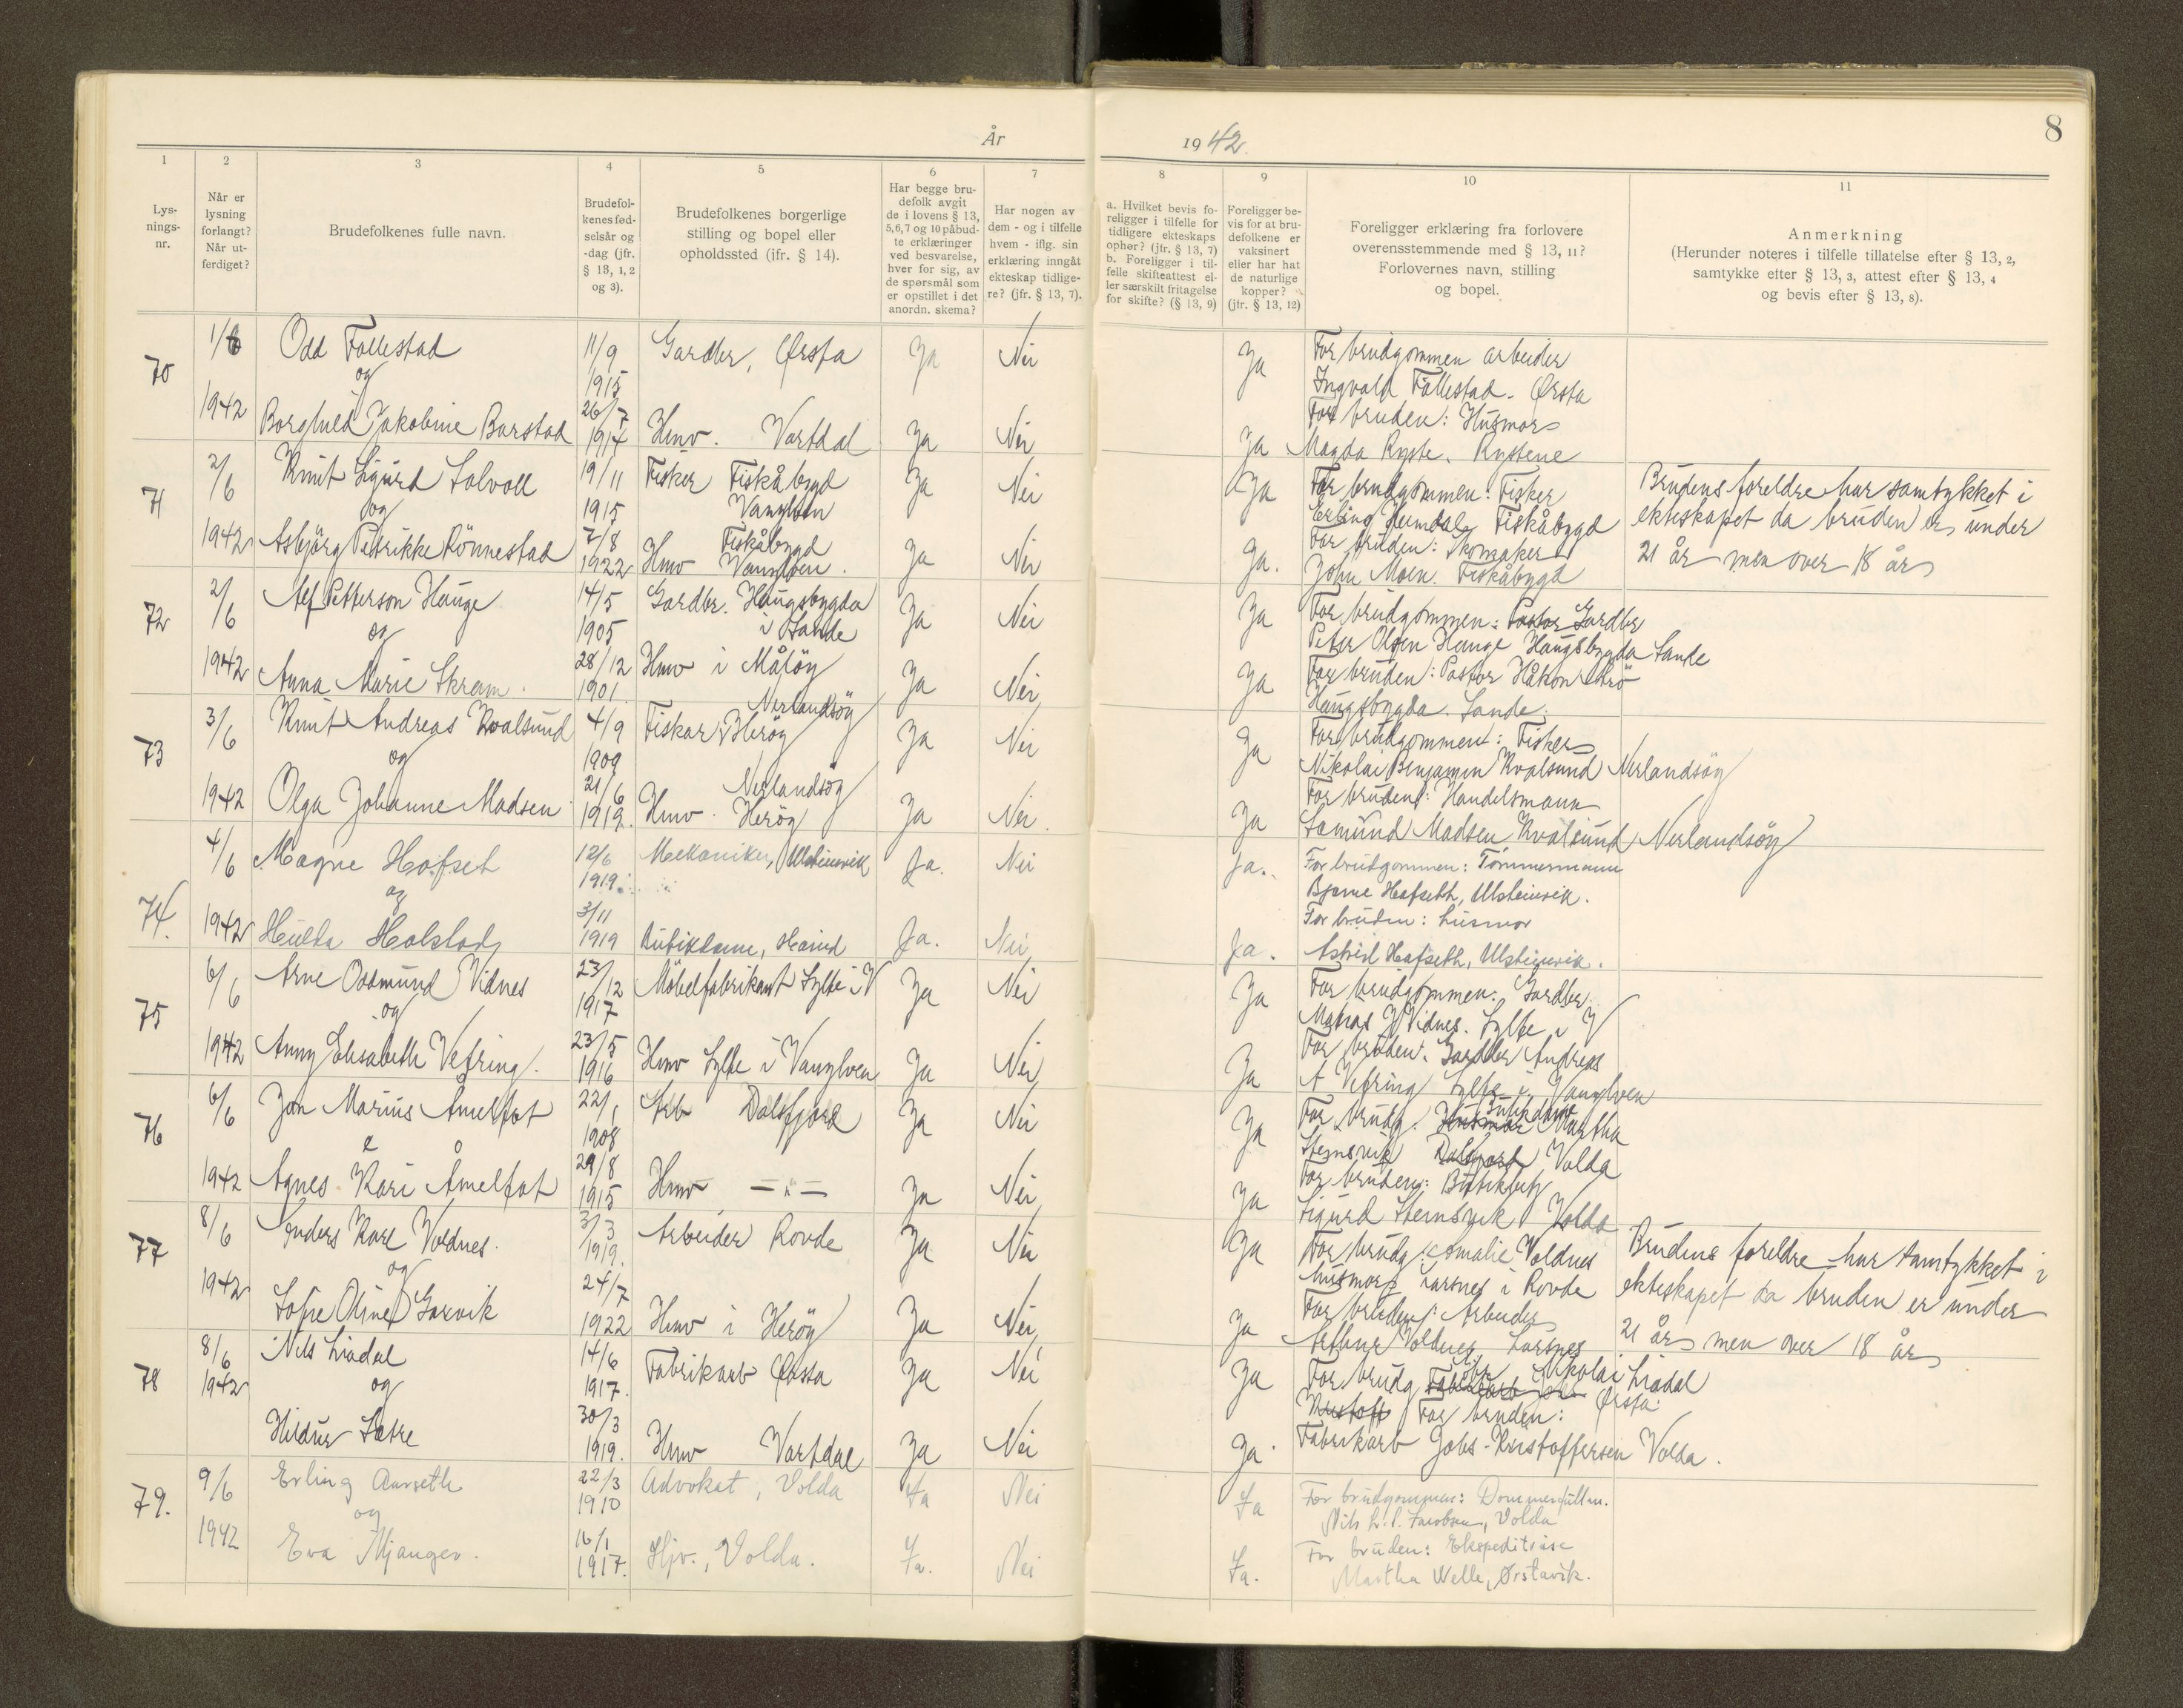 År
1942.
8
1
2
3
4
5
6
7
8
9
10
11
Lys-
nings-
nr.
Når er
lysning
forlangt?
Når ut-
ferdiget?
Brudefolkenes fulle navn.
Brudefol-
kenes fød-
selsår og
-dag (jfr.
§ 13, 1, 2
og 3).
Brudefolkenes borgerlige
stilling og bopel eller
opholdssted (jfr. § 14).
Har begge bru-
defolk avgit
de i lovens § 13,
5,6,7 og 10 påbud-
te erklæringer
ved besvarelse,
hver for sig, av
de spørsmål som
er opstillet i det
anordn. skema?
Har nogen av
dem - og i tilfelle
hvem - iflg. sin
erklæring inngåt
ekteskap tidlige-
re? (jfr. § 13, 7).
a. Hvilket bevis fo-
religger i tilfelle for
tidligere ekteskaps
ophør? (jfr. § 13, 7)
b. Foreligger i til-
felle skifteattest el-
ler særskilt fritagelse
for skifte? (§ 13, 9)
Foreligger be-
vis for at bru-
defolkene er
vaksinert
eller har hat
de naturlige
kopper?
(jfr. § 13, 12)
Foreligger erklæring fra forlovere
overensstemmende med § 13, 11?
Forlovernes navn, stilling
og bopel.
Anmerkning
(Herunder noteres i tilfelle tillatelse efter § 13, 2,
samtykke efter § 13, 3, attest efter § 13, 4
og bevis efter § 13, 8).
70
1/6
1942
Odd Follestad
og
Borghild Jakobine Barstad
11/9
1915
26/7
1914
Gardbr, Ørsta
Hmv. Vartdal
Ja
Ja
Nei
Nei
Ja
Ja
For brudgommen arbeider
Ingvald Follestad. Ørsta
For bruden: Husmor
Magda Ryste. Rystene
71
2/6
1942
Knut Sigurd Solvoll
og
Asbjörg Petrikke Rönnestad
19/11
1915
7/8
1922
Fisker Fiskåbygd
Vanylven
Fiskåbygd
Hmv Vanylven.
Ja
Ja
Nei
Nei
Ja
Ja.
For brudgommen: Fisker
Erling Heimdal Fiskåbygd
For bruden: Skomaker
John Moen. Fiskåbygd
Brudens foreldre har samtykket i
ekteskapet da bruden er under
21 år men over 18 år
72
2/6
1942
Alf Petterson Hauge
og
Anna Marie Skram.
14/5
1905
28/12
1901
Gardbr. Haugsbygda
i Sande
Hmv i Måløy
Ja
Ja
Nei
Nei
Ja
Ja
For brudgommen: Pastor Gardbr
Peter Olsen Hauge Haugsbygda Sande
For bruden: Pastor Håkon
Haugsbygda. Sande.
73
3/6
1942
Knut Andreas Kvalsund
og
Olga Johanne Madsen
4/9
1909
21/6
1919.
Nerlandsöy
Fiskar Heröy
Nerlandsöy
Hmv. Heröy
Ja
Ja
Nei
Nei.
Ja
Ja
For brudgommen: Fisker
Nikolai Benjamin Kvalsund Nerlandsöy
For bruden: Handelsmann
Samund Madsen Kvalsund Nerlandsöy
74.
4/6
1942
Magne Hofset
og
Hulda Holstad
12/6
1919.
3/11
1919
Mekaniker, Ulsteinvik
Butikdame, Hareid
Ja.
Ja.
Nei
Nei
Ja.
Ja.
For brudgommen: Tömmermann
Bjarne Hafseth, Ulsteinvik.
For bruden: husmor
Astrid Hafseth, Ulsteinvik.
75
6/6
1942
Arne Oddmund Vidnes
og
Anny Elisabeth Vefring.
23/12
1917
23/5
1916
Möbelfabrikant Sylte i V
Hmv Sylte i Vanylven
Ja
Ja
Nei
Nei
Ja
Ja
For brudgommen. Gardbr
Vidnes. Sylte i V
For bruden: Gardbr Andreas
A Vefring Sylte i Vanylven
76
6/6
1942
Jon Marius Åmelfot
&
Agnes Kari Åmelfot
22/1
1908
29/8
1915
Arb Dalsfjord
Hmv —"—
Ja
Ja
Nei
Nei
Ja
Ja
For brudg. Husmor Butikdame Martha
Steinsvik Dalsfjord Volda
For bruden: Butikbetj
Sigurd Steinsvik Volda
77
8/6
1942
Anders Karl Voldnes.
og
Sofie Oline Garvik
3/3
1919.
24/7
1922
Arbeider Rovde
Hmv i Heröy
Ja
Ja
Nei
Nei
Ja
Ja
For brudg. Amalie Voldnes
husmor Larsnes i Rovde
For bruden: Arbeider
Arthur Voldnes Larsnes
Brudens foreldre har samtykket i
ekteskapet da bruden er under
21 år men over 18 år
78
8/6
1942
Nils Liadal
og
Hildur Sætre
14/6
1917.
30/3
1919.
Fabrikarb Ørsta
Hmv Vartdal
Ja
Ja
Nei
Nei
Ja
Ja.
For brudg Gbr Nikolai Liadal
Ørsta.
For bruden:
Fabrikarb Jobs-Kristoffersen Volda.
79.
9/6
1942
Erling Aurseth
og
Eva Mjanger.
22/3
1910
16/1
1917.
Advokat, Volda
Hjv., Volda.
Ja
Ja.
Nei
Nei
Ja
Ja.
For brudgommen: Dommerfullm.
Nils L. S. Jacobsen, Volda
For bruden: Ekspeditrise
Martha Welle, Ørstavik.